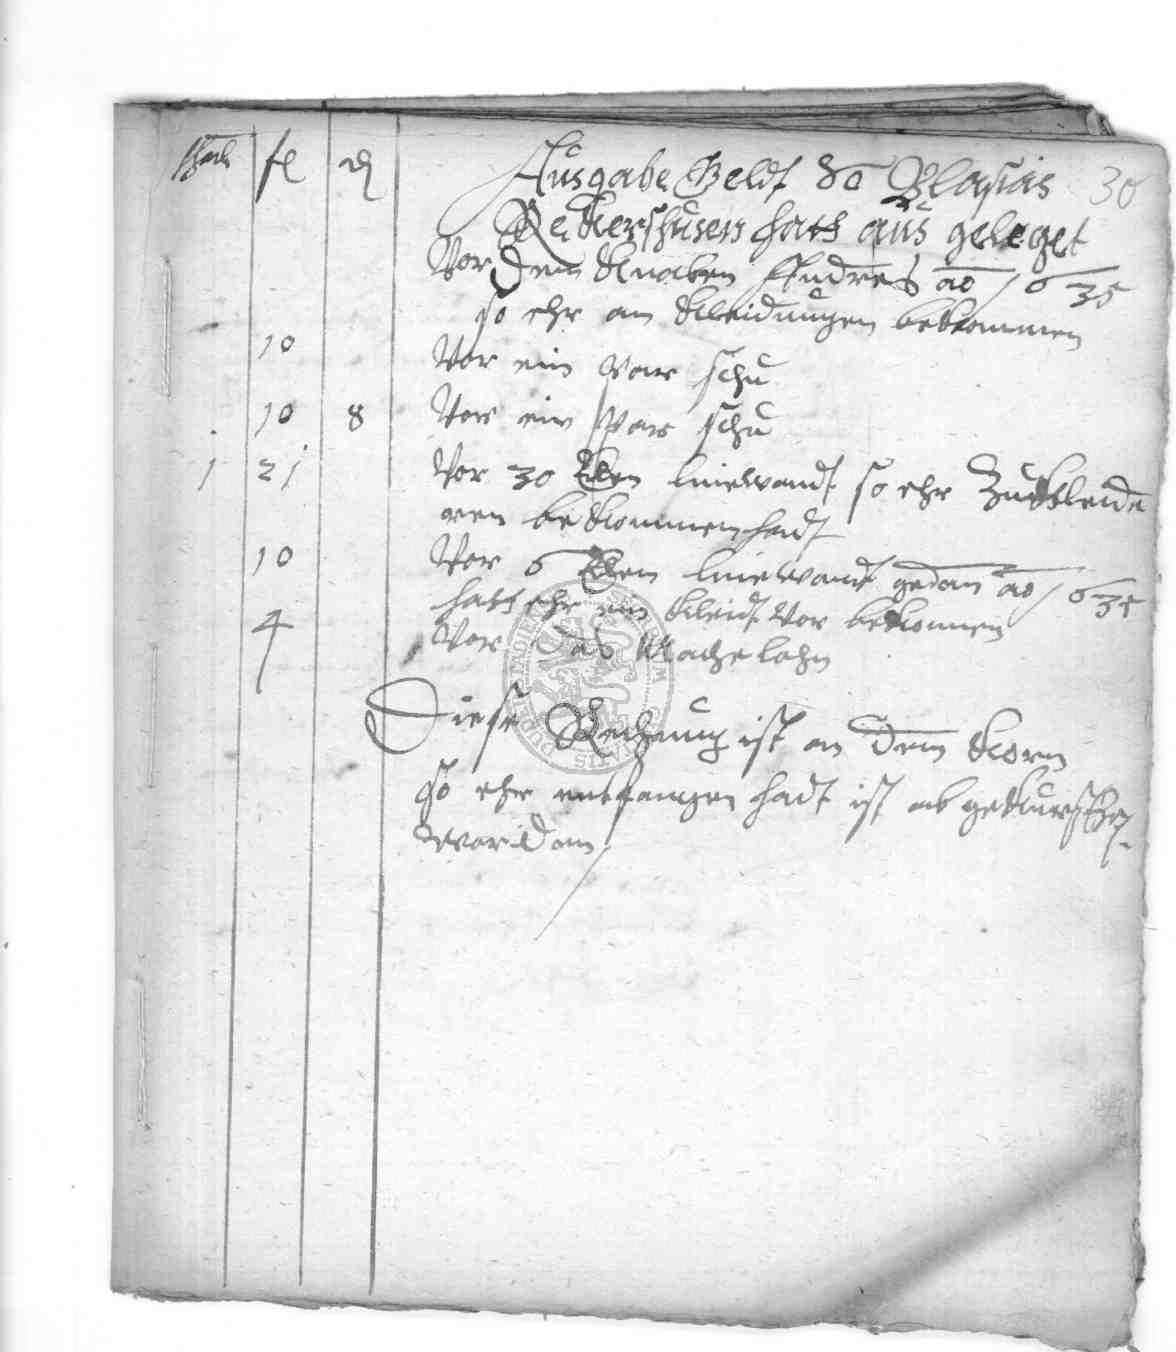 thaler fl ₰
Ausgabe Geldt so Blasius 30
Reckershusen hatt aus geleget
Vor dem Knaben Andres ao 1635
so ehr an Kleidungen bekommen
10 Vor ein Par schu
10 8 Vor ein Par schu
1 21 Vor 30 Elen linewandt so ehr Zu Kleide
ren bekommen hadt
10 Vor 6 Elen linewandt gedan ao 1635
hatt ehr ein Kleidt vor bekomen
4 Vor das Machelohn
Diese Rechnung ist an dem Korn
so ehr entfangen hadt ist ab
wordam